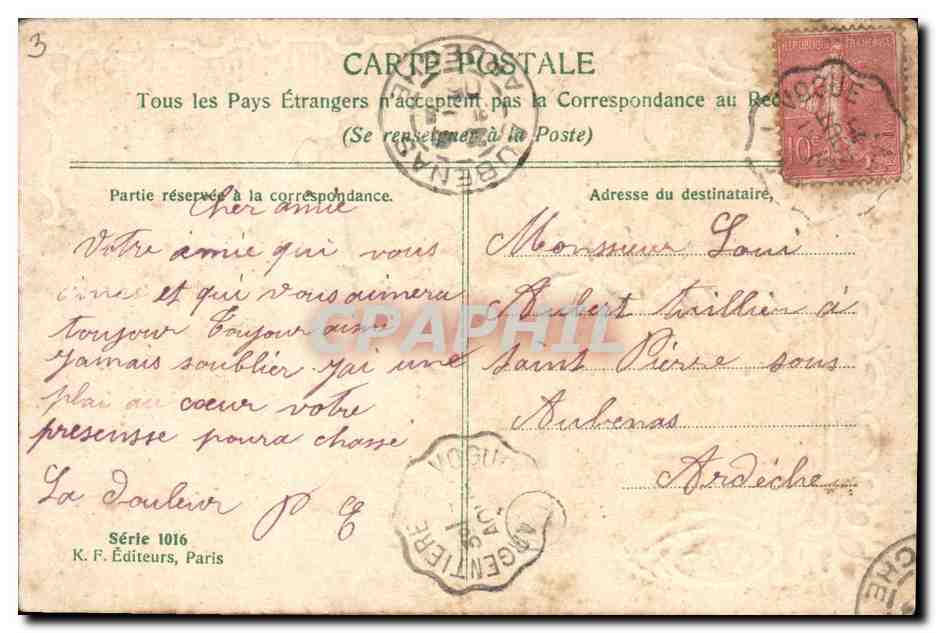 3
CARTE POSTALE
Tous les Pays Étrangers n'acceptent pas la Correspondance au
(Se renseigner à la Poste)
REPUBLIQUE FRANÇAISE
10
VOGUE
AUBENAS
ARDECHE
Partie réservée à la correspondance.
Cher amie
Votre amie qui vous
et qui vous aimera
toujour toujour
jamais soublier jai une
plai au cœur votre
presensse poura chassé
La douleur P E
Adresse du destinataire,
Monsieur Loui
Aubert tuillier à
Saint Pierre sous
Aubenas
Ardèche
CPAPHIL
VOGUE
ARGENTIERE
AOU
Série 1016
K. F. Éditeurs, Paris
CHE